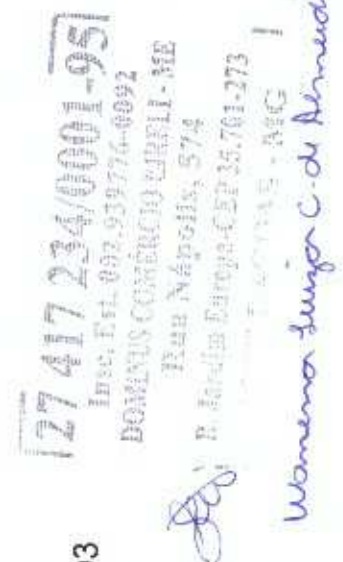 27 417 234/0001-95
Insc. Est. 002.939776-0092
DOMINUS COMERCIO EIRELI - ME
Rua Nápolis, 574
B. Jardim Europa-CEP 35.701-273
- MG
C. de Almeid
03